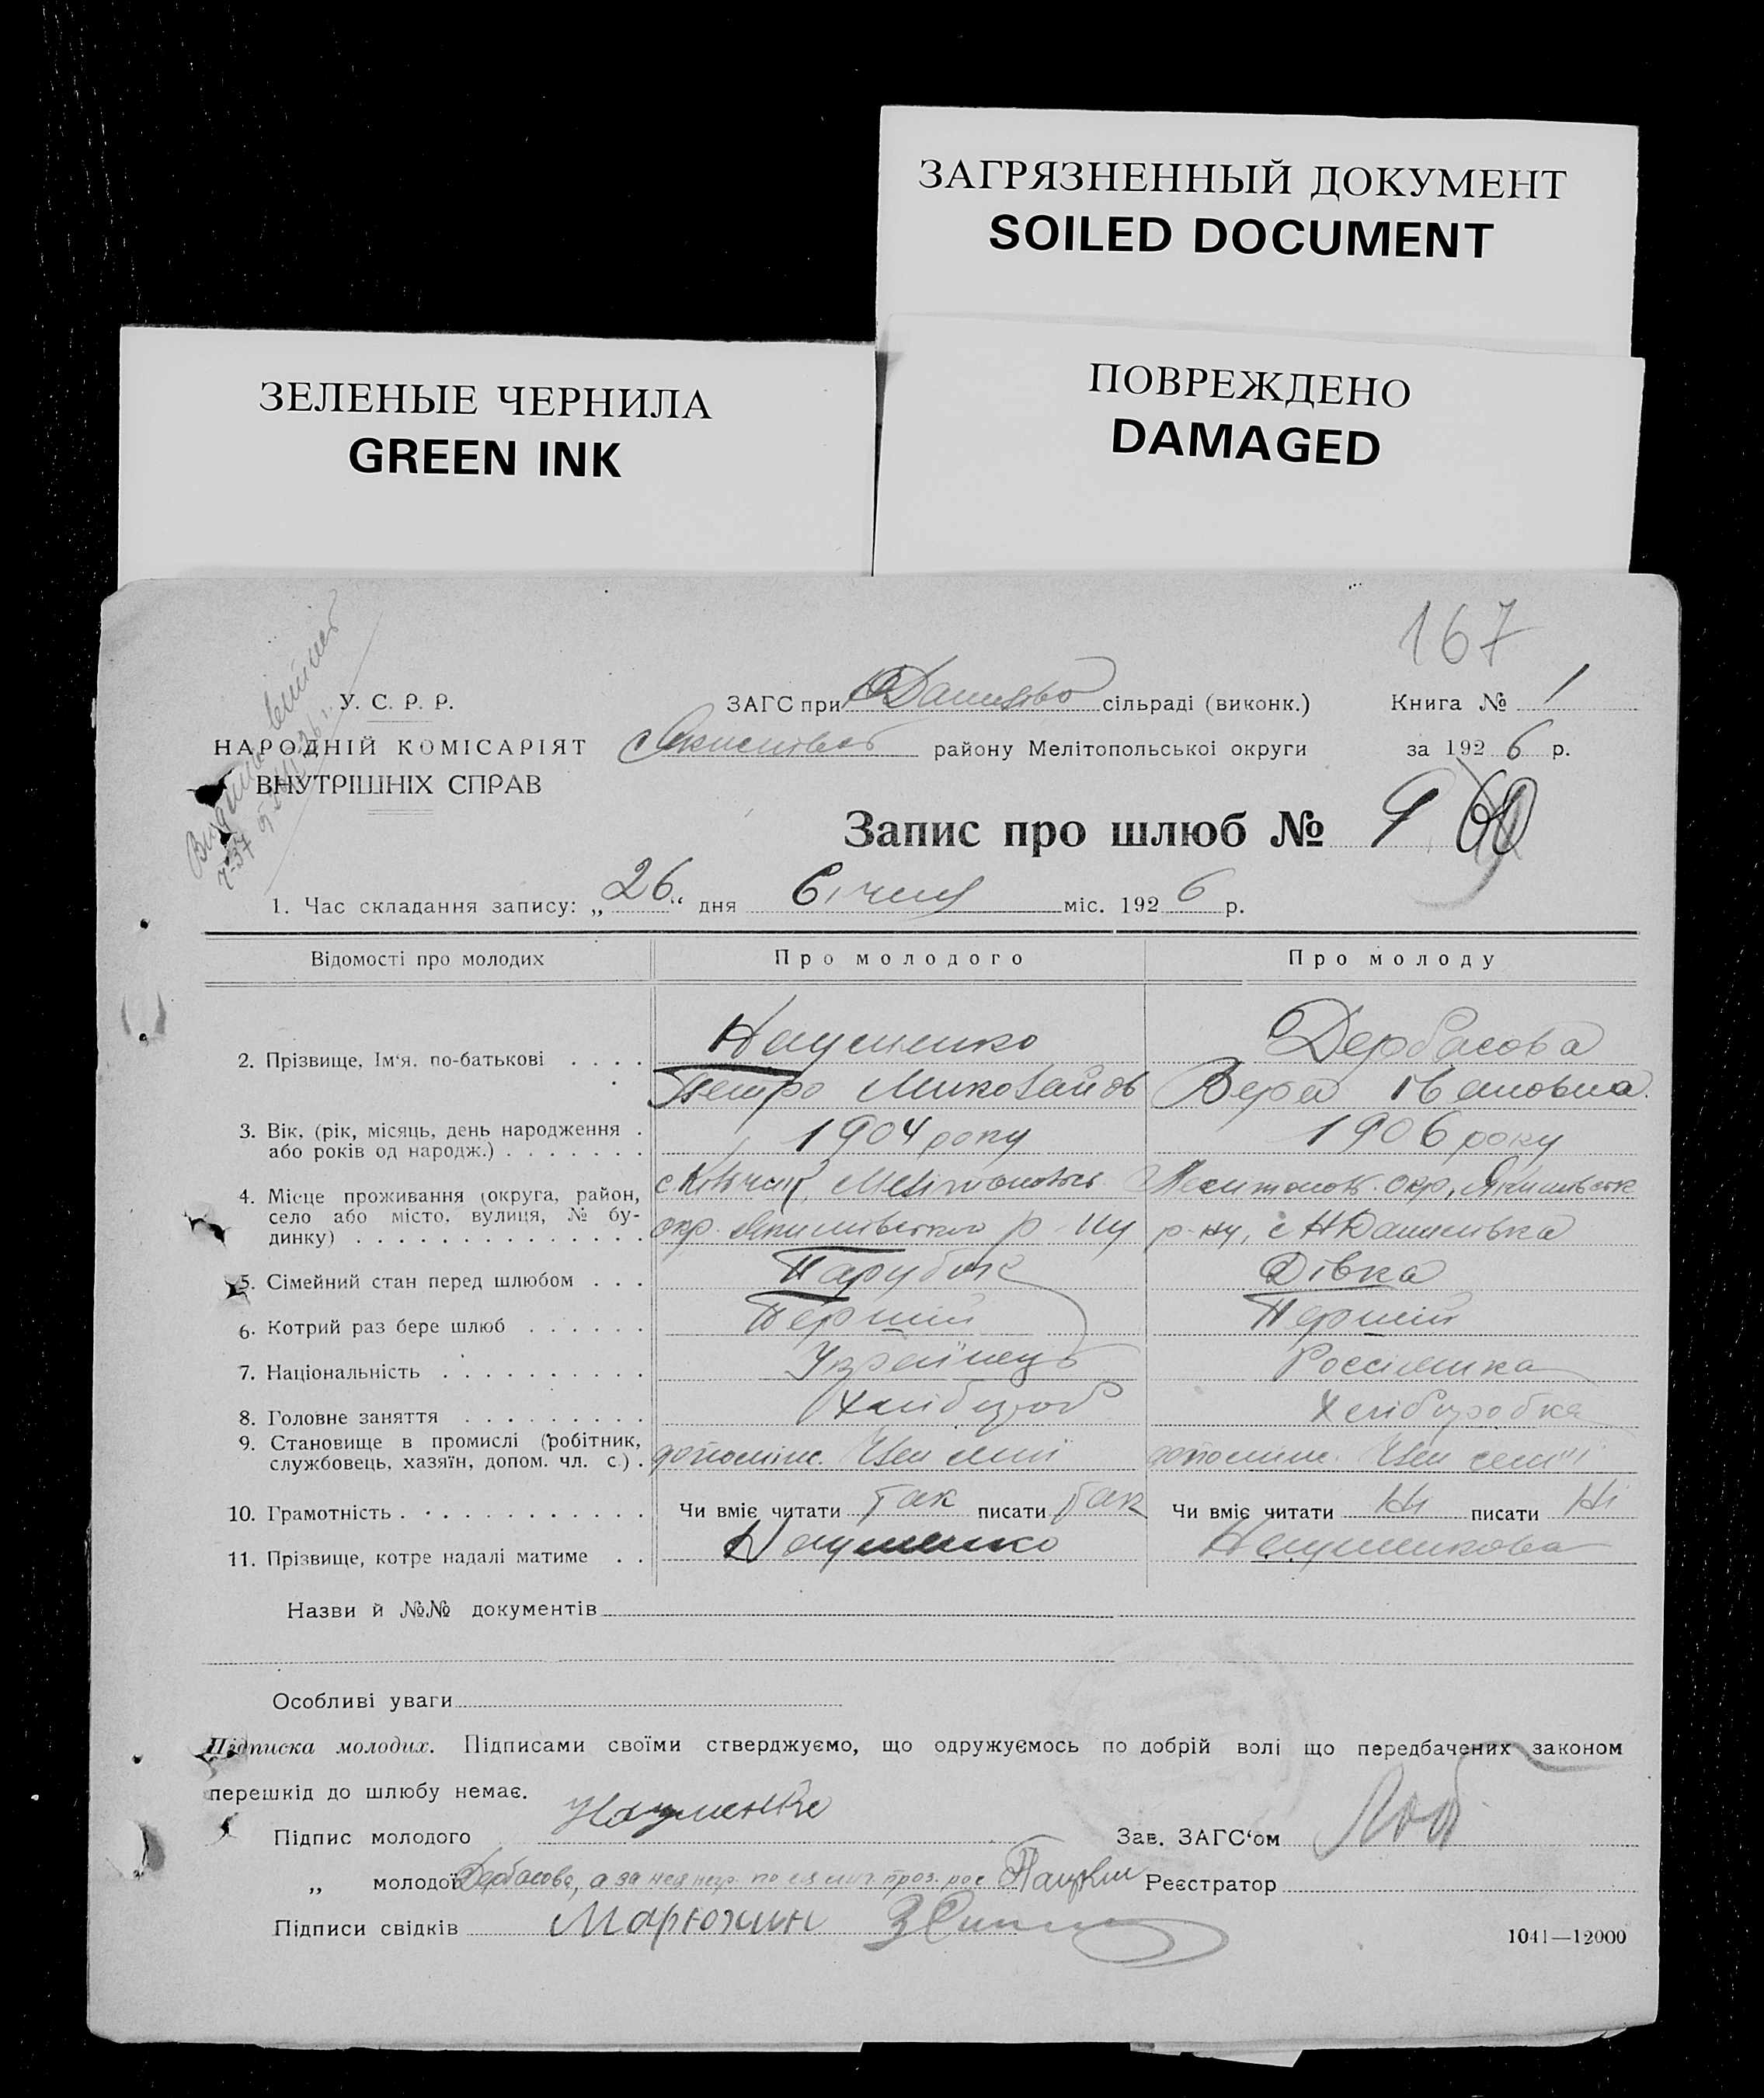 ЗАГРЯЗНЕННЫЙ ДОКУМЕНТ
SOILED DOCUMENT
ЗЕЛЕНЫЕ ЧЕРНИЛА
GREEN INK
ПОВРЕЖДЕНО
DAMAGED
167
У. С. Р. Р.
НАРОДНІЙ КОМІСАРІЯТ
ВНУТРІШНІХ СПРАВ
ЗАГС при сільраді (виконк.)
Книга № 1
району Мелітопольської округи
за 1926 р.
Запис про шлюб № 9
1. Час складання запису: „26“ дня Січня міс. 1926 р.
Відомості про молодих
Про молодого
Про молоду
2. Прізвище, Ім'я, по-батькові . . . .
Науменко
Петро Миколайов
Дербасова
Вера Івановна
3. Вік, (рік, місяць, день народження .
або років од народж.) . . . . . . .
1904 року
1906 року
4. Місце проживання (округа, район,
село або місто, вулиця, № бу-
динку) . . . . . . . . . . . . . .
окр. Якимівського р-ну
Мелитопольск. окр, Якимівськ
р-ну, с НДанилівка
5. Сімейний стан перед шлюбом . . .
Парубок
Дівка
6. Котрий раз бере шлюб . . . . . .
Перший
Перший
7. Національність . . . . . . . . . .
Українець
Россіянка
8. Головне заняття . . . . . . . . .
Хлібороб
Хліборобка
9. Становище в промислі (робітник,
службовець, хазяїн, допом. чл. с.) .
допоміж. Член сімї
допоміж. Член семіі
10. Грамотність . . . . . . . . . . . .
Чи вміє читати Так писати Так
Чи вміє читати Ні писати Ні
11. Прізвище, котре надалі матиме . .
Науменко
Науменкова
Назви й №№ документів
Особливі уваги
Підписка молодих. Підписами своїми стверджуємо, що одружуємось по добрій волі що передбачених законом
перешкід до шлюбу немає.
Підпис молодого Науменко
Зав. ЗАГС'ом
„ молодої Дербасова, а за нея негр. по ея
Реєстратор
Підписи свідків Марюхин
1041—12000